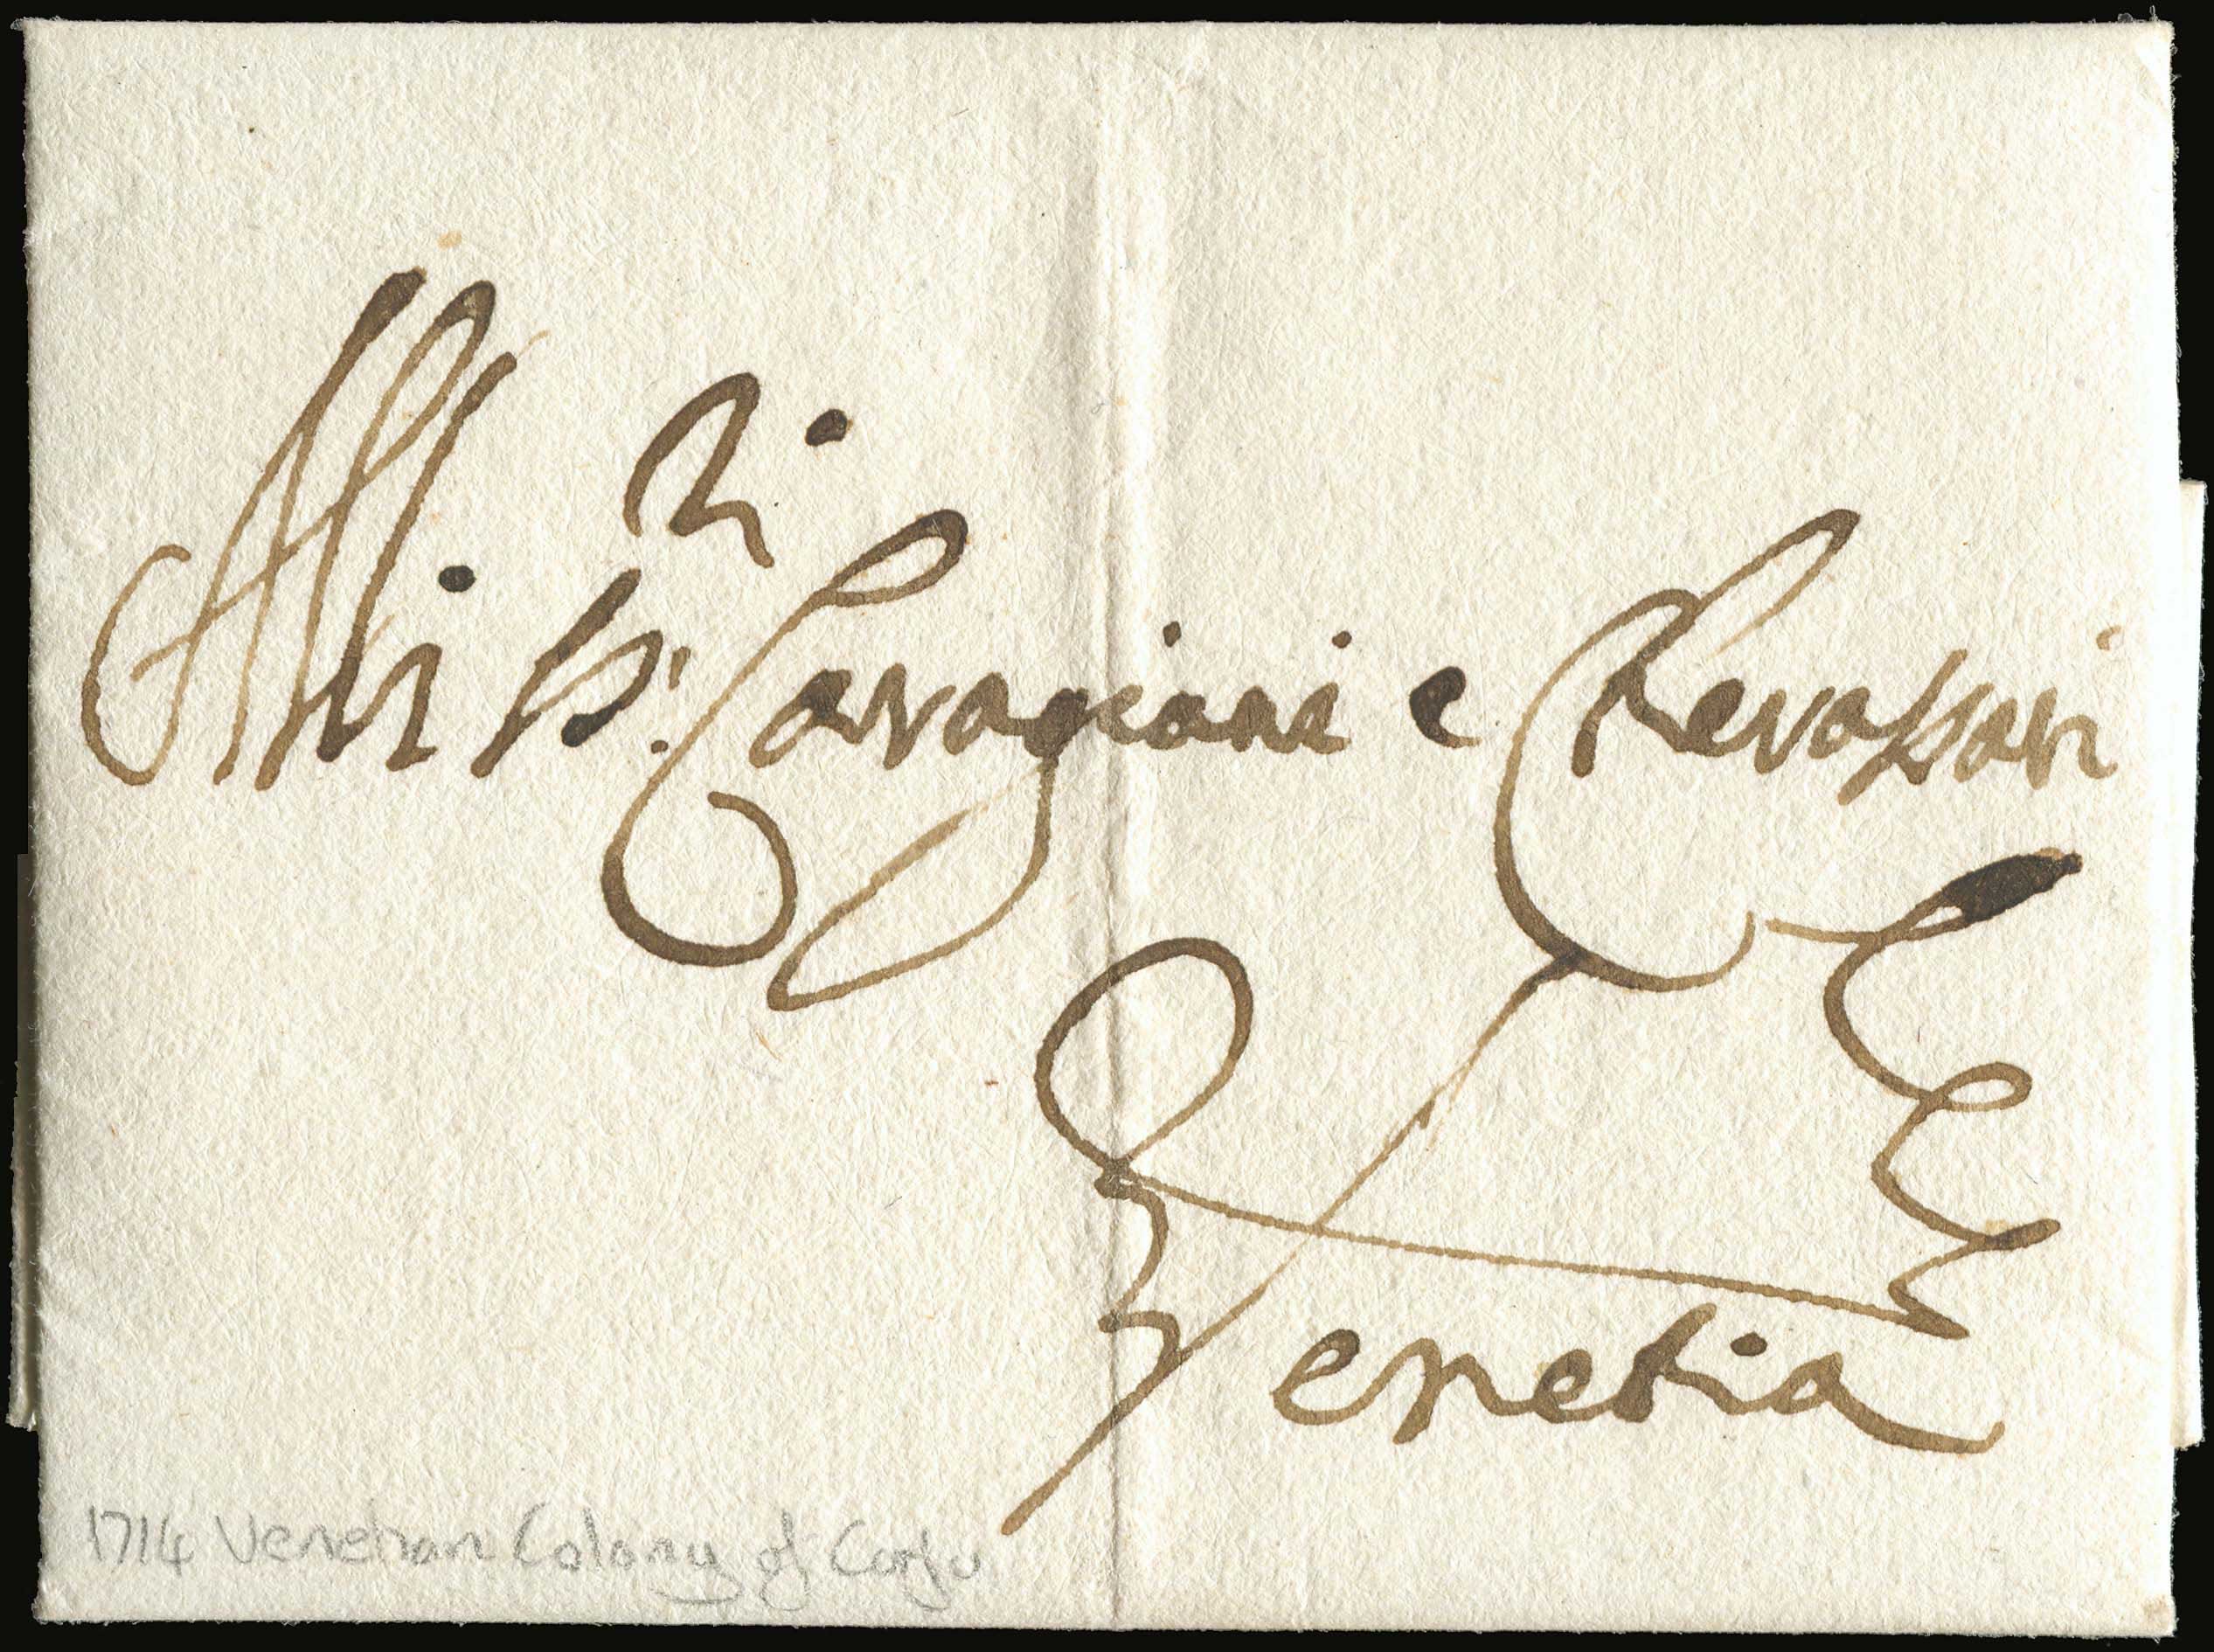 Alli SS:ri Cavagiani e Revassari
Venetia
1714 Venetian Colony of Corfu